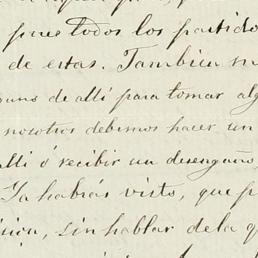 pues todos los partido
de estas. Tambien m
guns de allí para tomar alg
nosotros debemos hacer un
allí ó recibir un desengaño
Ya habrás visto, que p
sin hablar de la q